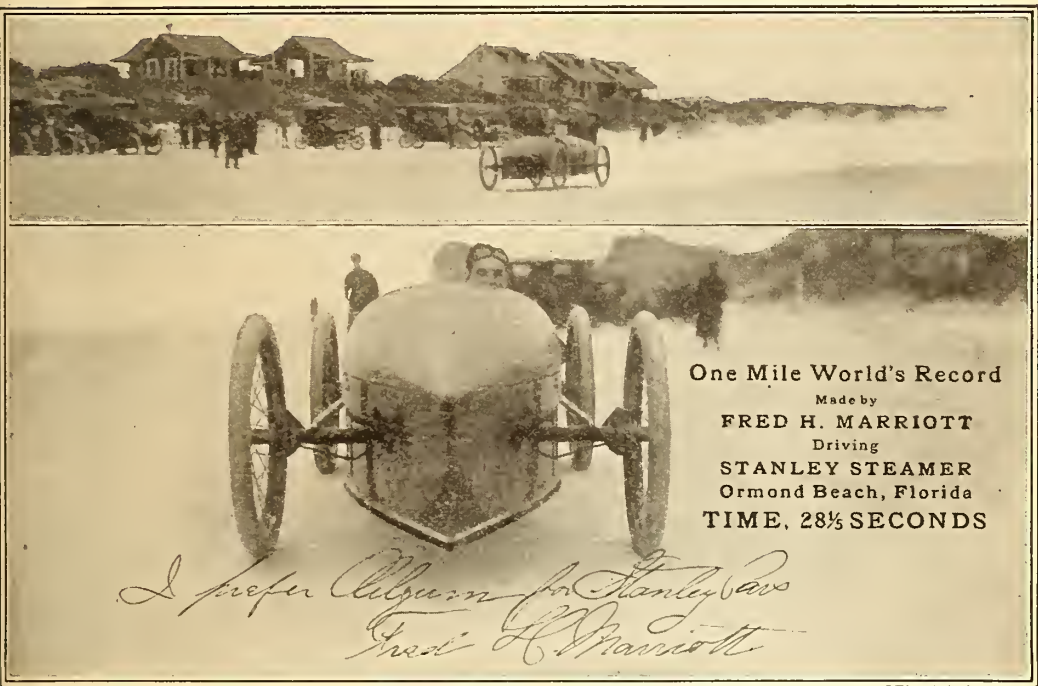 One Mile World's Record
Made by
FRED H. MARRIOTT
Driving
STANLEY STEAMER
Ormond Beach, Florida
TIME, 28⅕ SECONDS
I prefer Oilgum for Stanley Cars
Fred H. Marriott